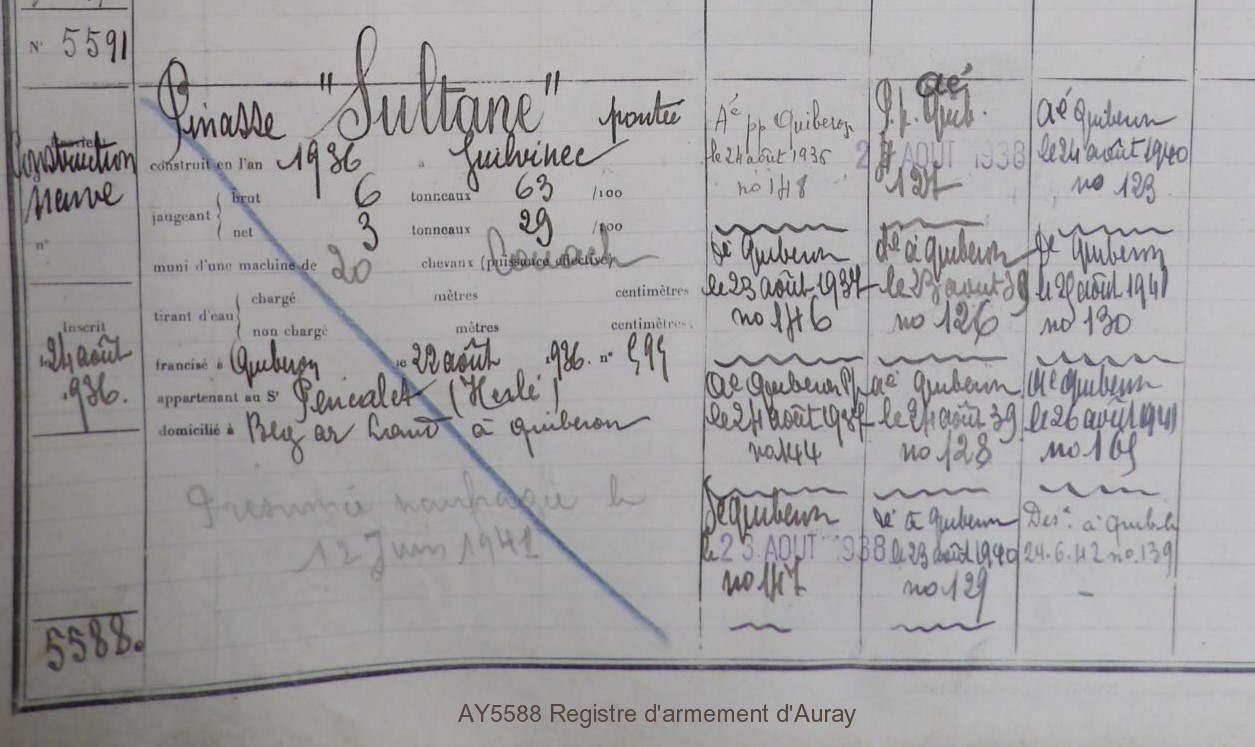 N° 5591
Construction
neuve
n°
Inscrit
24 août
1936.
5588.
Pinasse "Sultane" pontée
construit en l'an 1936 à Guilvinec
jaugeant { brut 6 tonneaux 63 /100
net 3 tonneaux 29 /100
muni d'une machine de 20 chevaux (puissance effective)
tirant d'eau { chargé mètres centimètres
non chargé mètres centimètres.
francisé à Quiberon le 22 août 1936. n°
appartenant au Sr Pencalet (Herlé)
domicilié à Beg ar Land à Quiberon
Présumé naufragé le
12 Juin 1941
Aé pp Quiberon
le 24 août 1936
no 148
Dé Quiberon
le 23 août 1937
no 146
aé Quiberon
le 24 août 1937
no 144
Dé Quiberon
le 23 AOUT 1938
no 147
aé
P.p. Quib.
AOUT 1938
127
dé à Quiberon
le 23 aout 39
no 126
aé Quiberon
le 24 août 39
no 128
dé à Quiberon
le 23 août 1940
no 129
aé Quiberon
le 24 août 1940
no 123
Dé Quiberon
le 25 août 1941
no 130
Aé Quiberon
le 26 août 1941
no 165
Desé à Quib
24.6.42 no.139
AY5588 Registre d'armement d'Auray